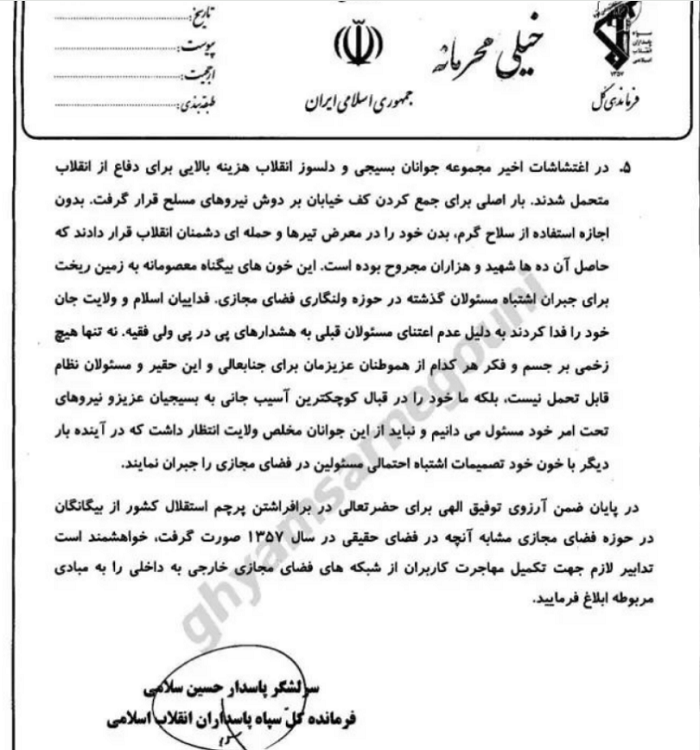 تاریخ:
پیوست:
ارجحیت:
طبقه‌بندی:
جمهوری اسلامی ایران
خیلی محرمانه
سپاه
پاسداران
انقلاب
اسلامی
۱۳۵۷
فرماندهی کل
۵. در اغتشاشات اخیر مجموعه جوانان بسیجی و دلسوز انقلاب هزینه بالایی برای دفاع از انقلاب
متحمل شدند. بار اصلی برای جمع کردن کف خیابان بر دوش نیروهای مسلح قرار گرفت. بدون
اجازه استفاده از سلاح گرم، بدن خود را در معرض تیرها و حمله ای دشمنان انقلاب قرار دادند که
حاصل آن ده ها شهید و هزاران مجروح بوده است. این خون های بیگناه معصومانه به زمین ریخت
برای جبران اشتباه مسئولان گذشته در حوزه ولنگاری فضای مجازی. فداییان اسلام و ولایت جان
خود را فدا کردند به دلیل عدم اعتنای مسئولان قبلی به هشدارهای پی در پی ولی فقیه. نه تنها هیچ
زخمی بر جسم و فکر هر کدام از هموطنان عزیزمان برای جنابعالی و این حقیر و مسئولان نظام
قابل تحمل نیست، بلکه ما خود را در قبال کوچکترین آسیب جانی به بسیجیان عزیزو نیروهای
تحت امر خود مسئول می دانیم و نباید از این جوانان مخلص ولایت انتظار داشت که در آینده بار
دیگر با خون خود تصمیمات اشتباه احتمالی مسئولین در فضای مجازی را جبران نمایند.
در پایان ضمن آرزوی توفیق الهی برای حضرتعالی در برافراشتن پرچم استقلال کشور از بیگانگان
در حوزه فضای مجازی مشابه آنچه در فضای حقیقی در سال ۱۳۵۷ صورت گرفت، خواهشمند است
تدابیر لازم جهت تکمیل مهاجرت کاربران از شبکه های فضای مجازی خارجی به داخلی را به مبادی
مربوطه ابلاغ فرمایید.
سرلشکر پاسدار حسین سلامی
فرمانده کل سپاه پاسداران انقلاب اسلامی
ghyamsarnegouni